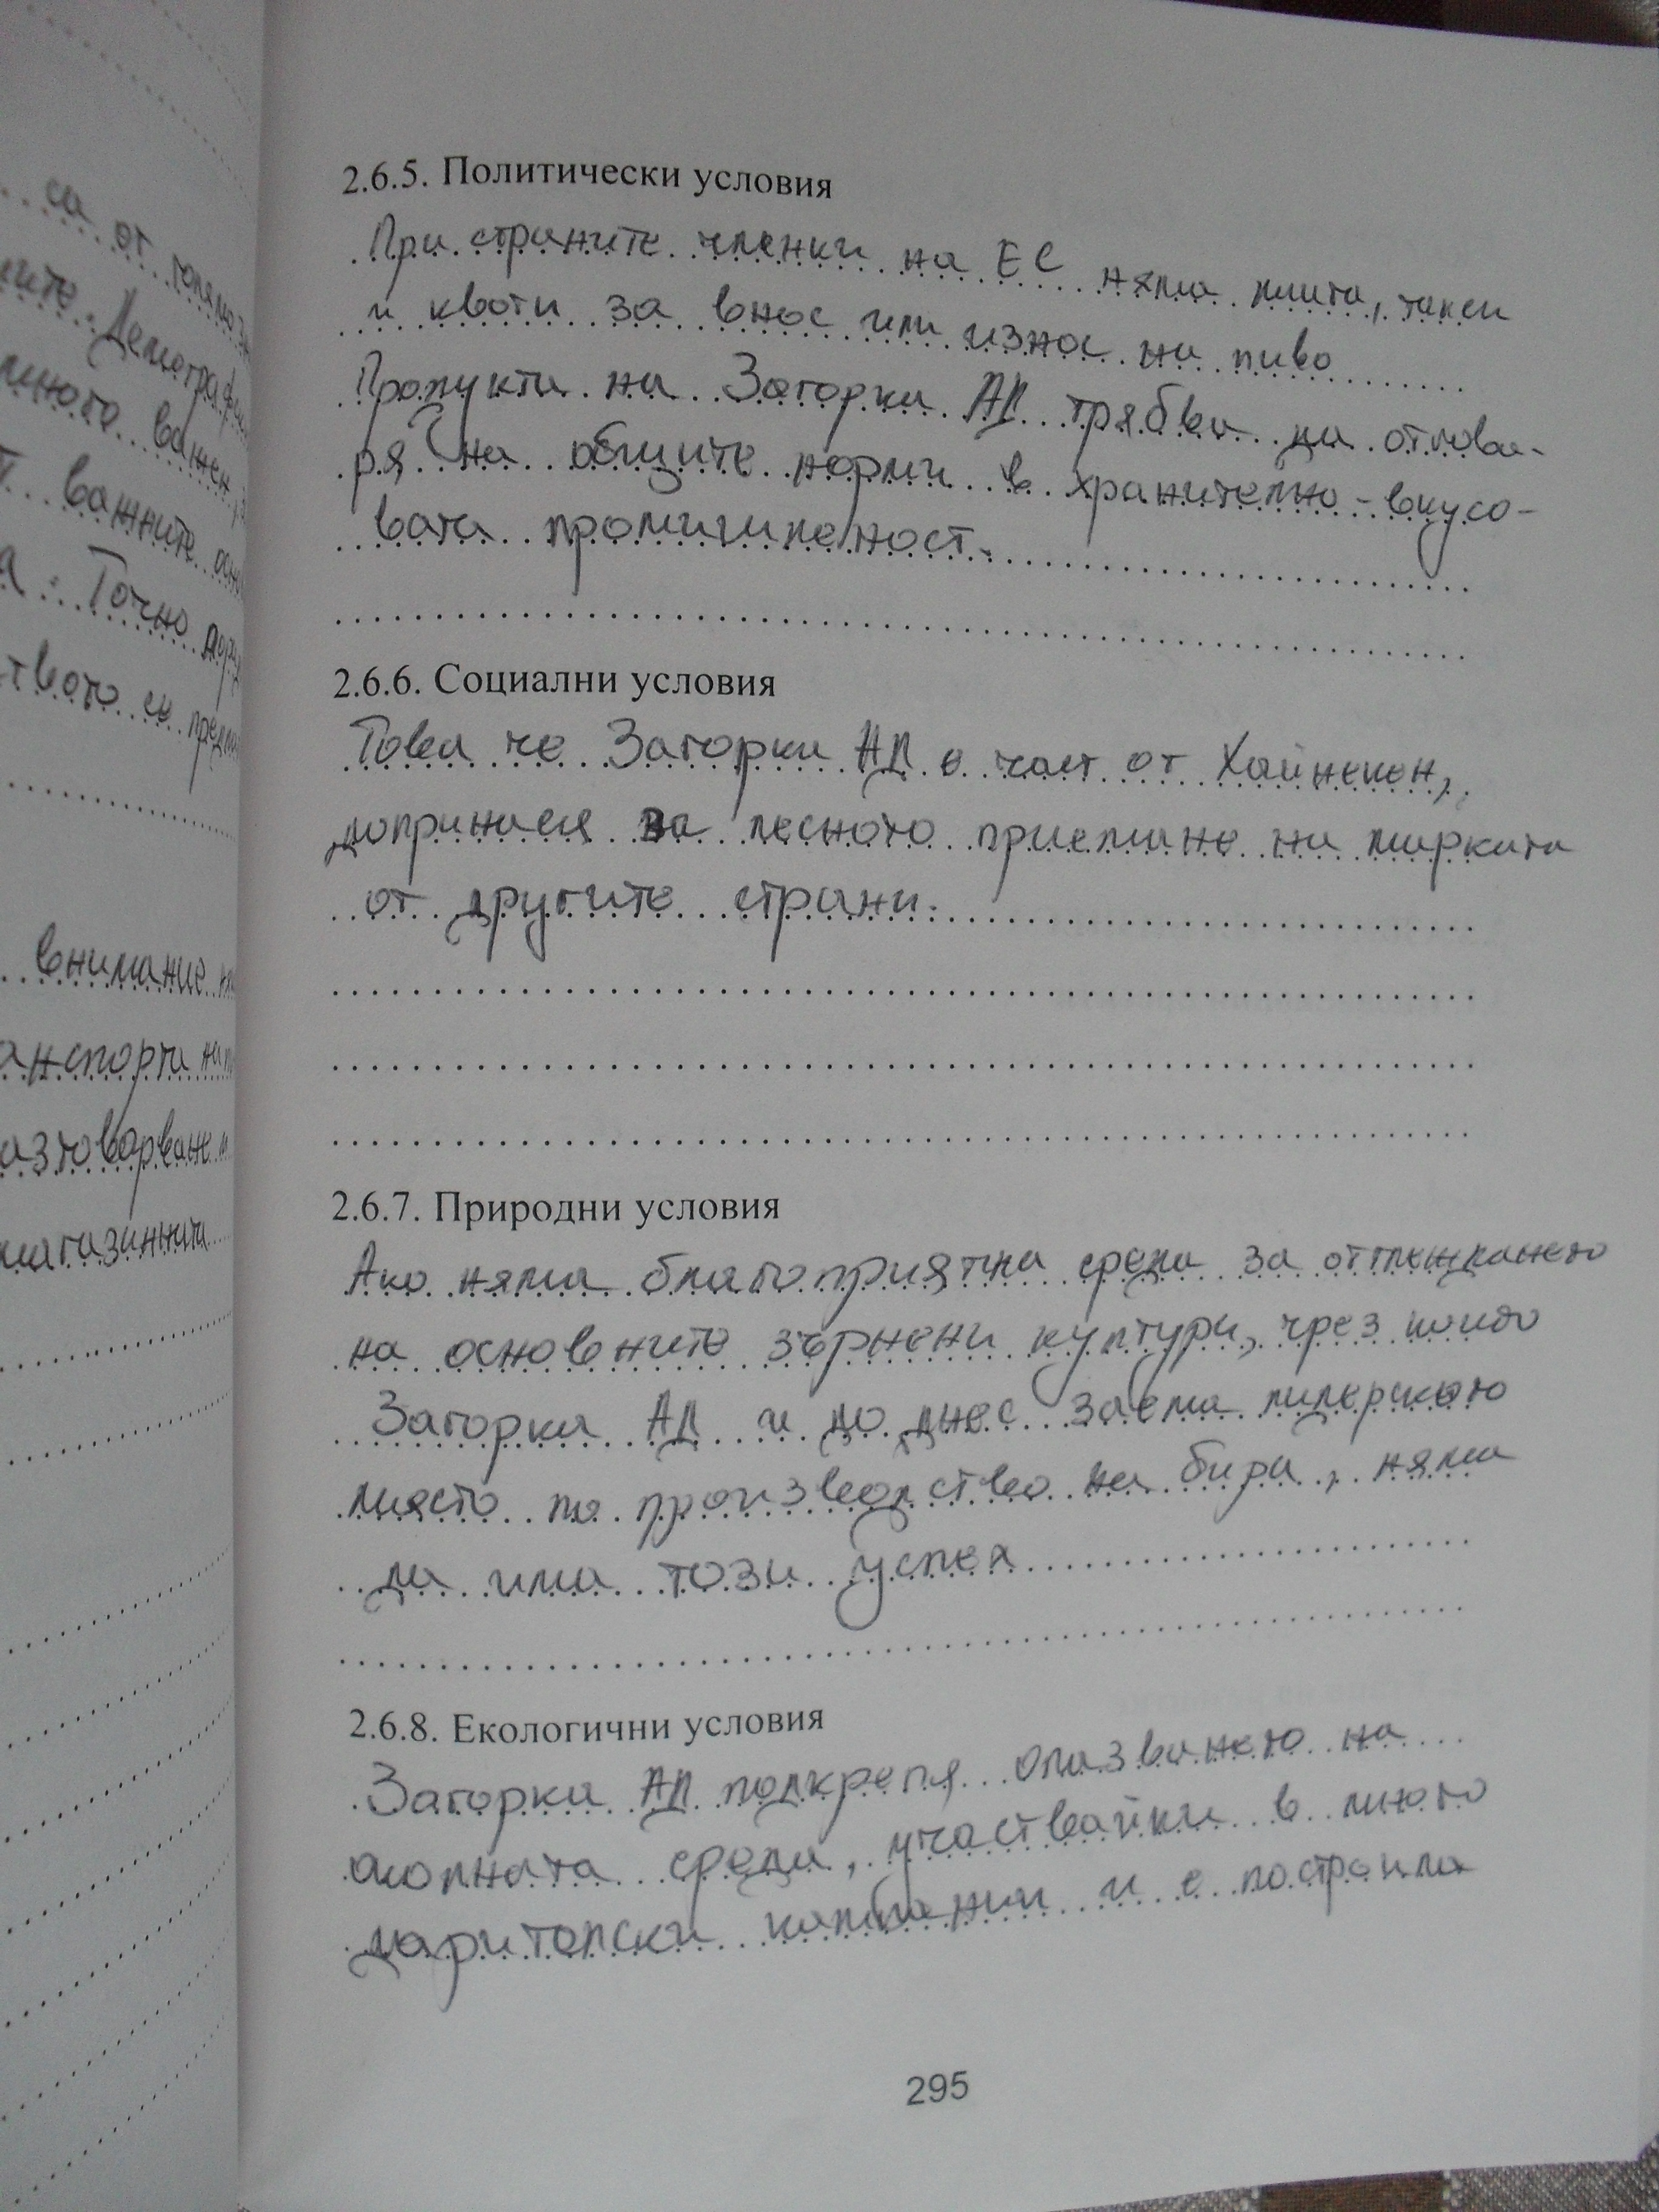 са от голямо
ните. Демограф
много важен
т важните осн
а. Точно пора
твото се предла
внимание на
анспорта на
азтоварване и
магазинните
2.6.5. Политически условия
При страните членки на ЕС няма мита, такси
и квоти за внос или износ на пиво
Продукта на Загорка АД трябва да отгова-
ря на общите норми в хранително-вкусо-
вата промишленост.
2.6.6. Социални условия
Това че Загорка АД е част от Хайнекен,
допринася за лесното приемане на марката
от другите страни.
2.6.7. Природни условия
Ако няма благоприятна среда за отглеждането
на основните зърнени култури, чрез които
Загорка АД и до днес заема лидерското
място по производство на бира, няма
да има този успех
2.6.8. Екологични условия
Загорка АД подкрепя опазването на
околната среда, участвайки в много
дарителски кампании и е построила
295